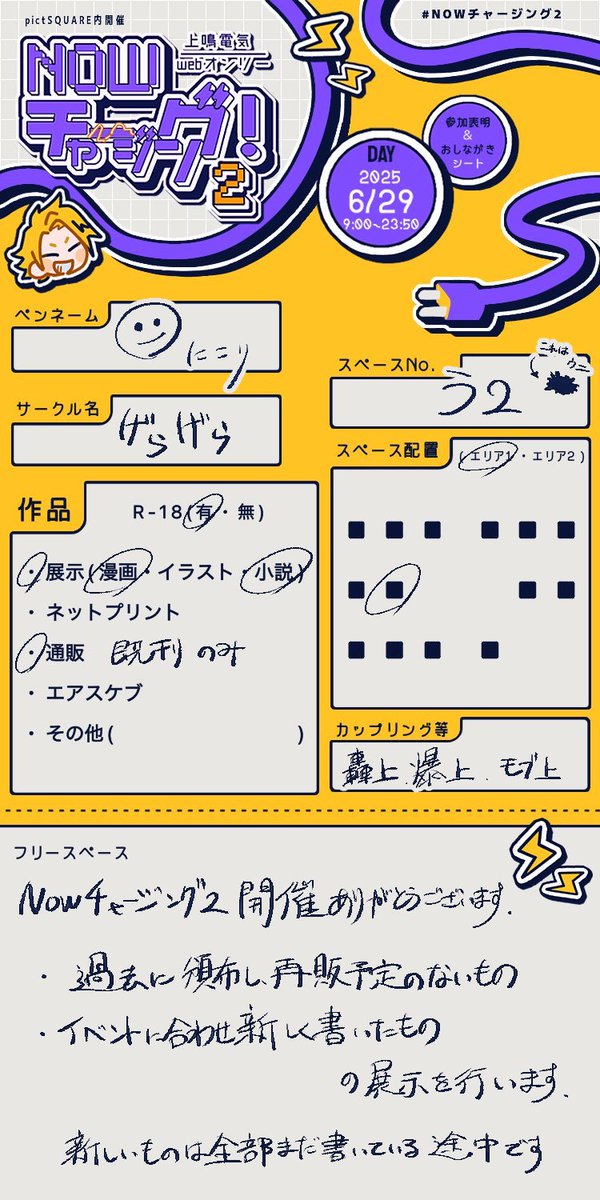 pictSQUARE内開催
#NOWチャージング2
上鳴電気
webオンリー
NOW
チャージング!
2
参加表明
&
おしながき
シート
DAY
2025
6/29
9:00~23:50
ペンネーム
にこり
スペースNo.
う2
これは
ウニ
サークル名
げらげら
スペース配置
(エリア1・エリア2)
作品
R-18(有・無)
・展示(漫画・イラスト・小説)
・ネットプリント
・通販 既刊のみ
・エアスケブ
・その他( )
カップリング等
轟上.爆上.モブ上
フリースペース
Nowチャージング2 開催ありがとうございます.
・過去に頒布し、再販予定のないもの
・イベントに合わせ新しく書いたもの
の展示を行います.
新しいものは全部まだ書いている途中です